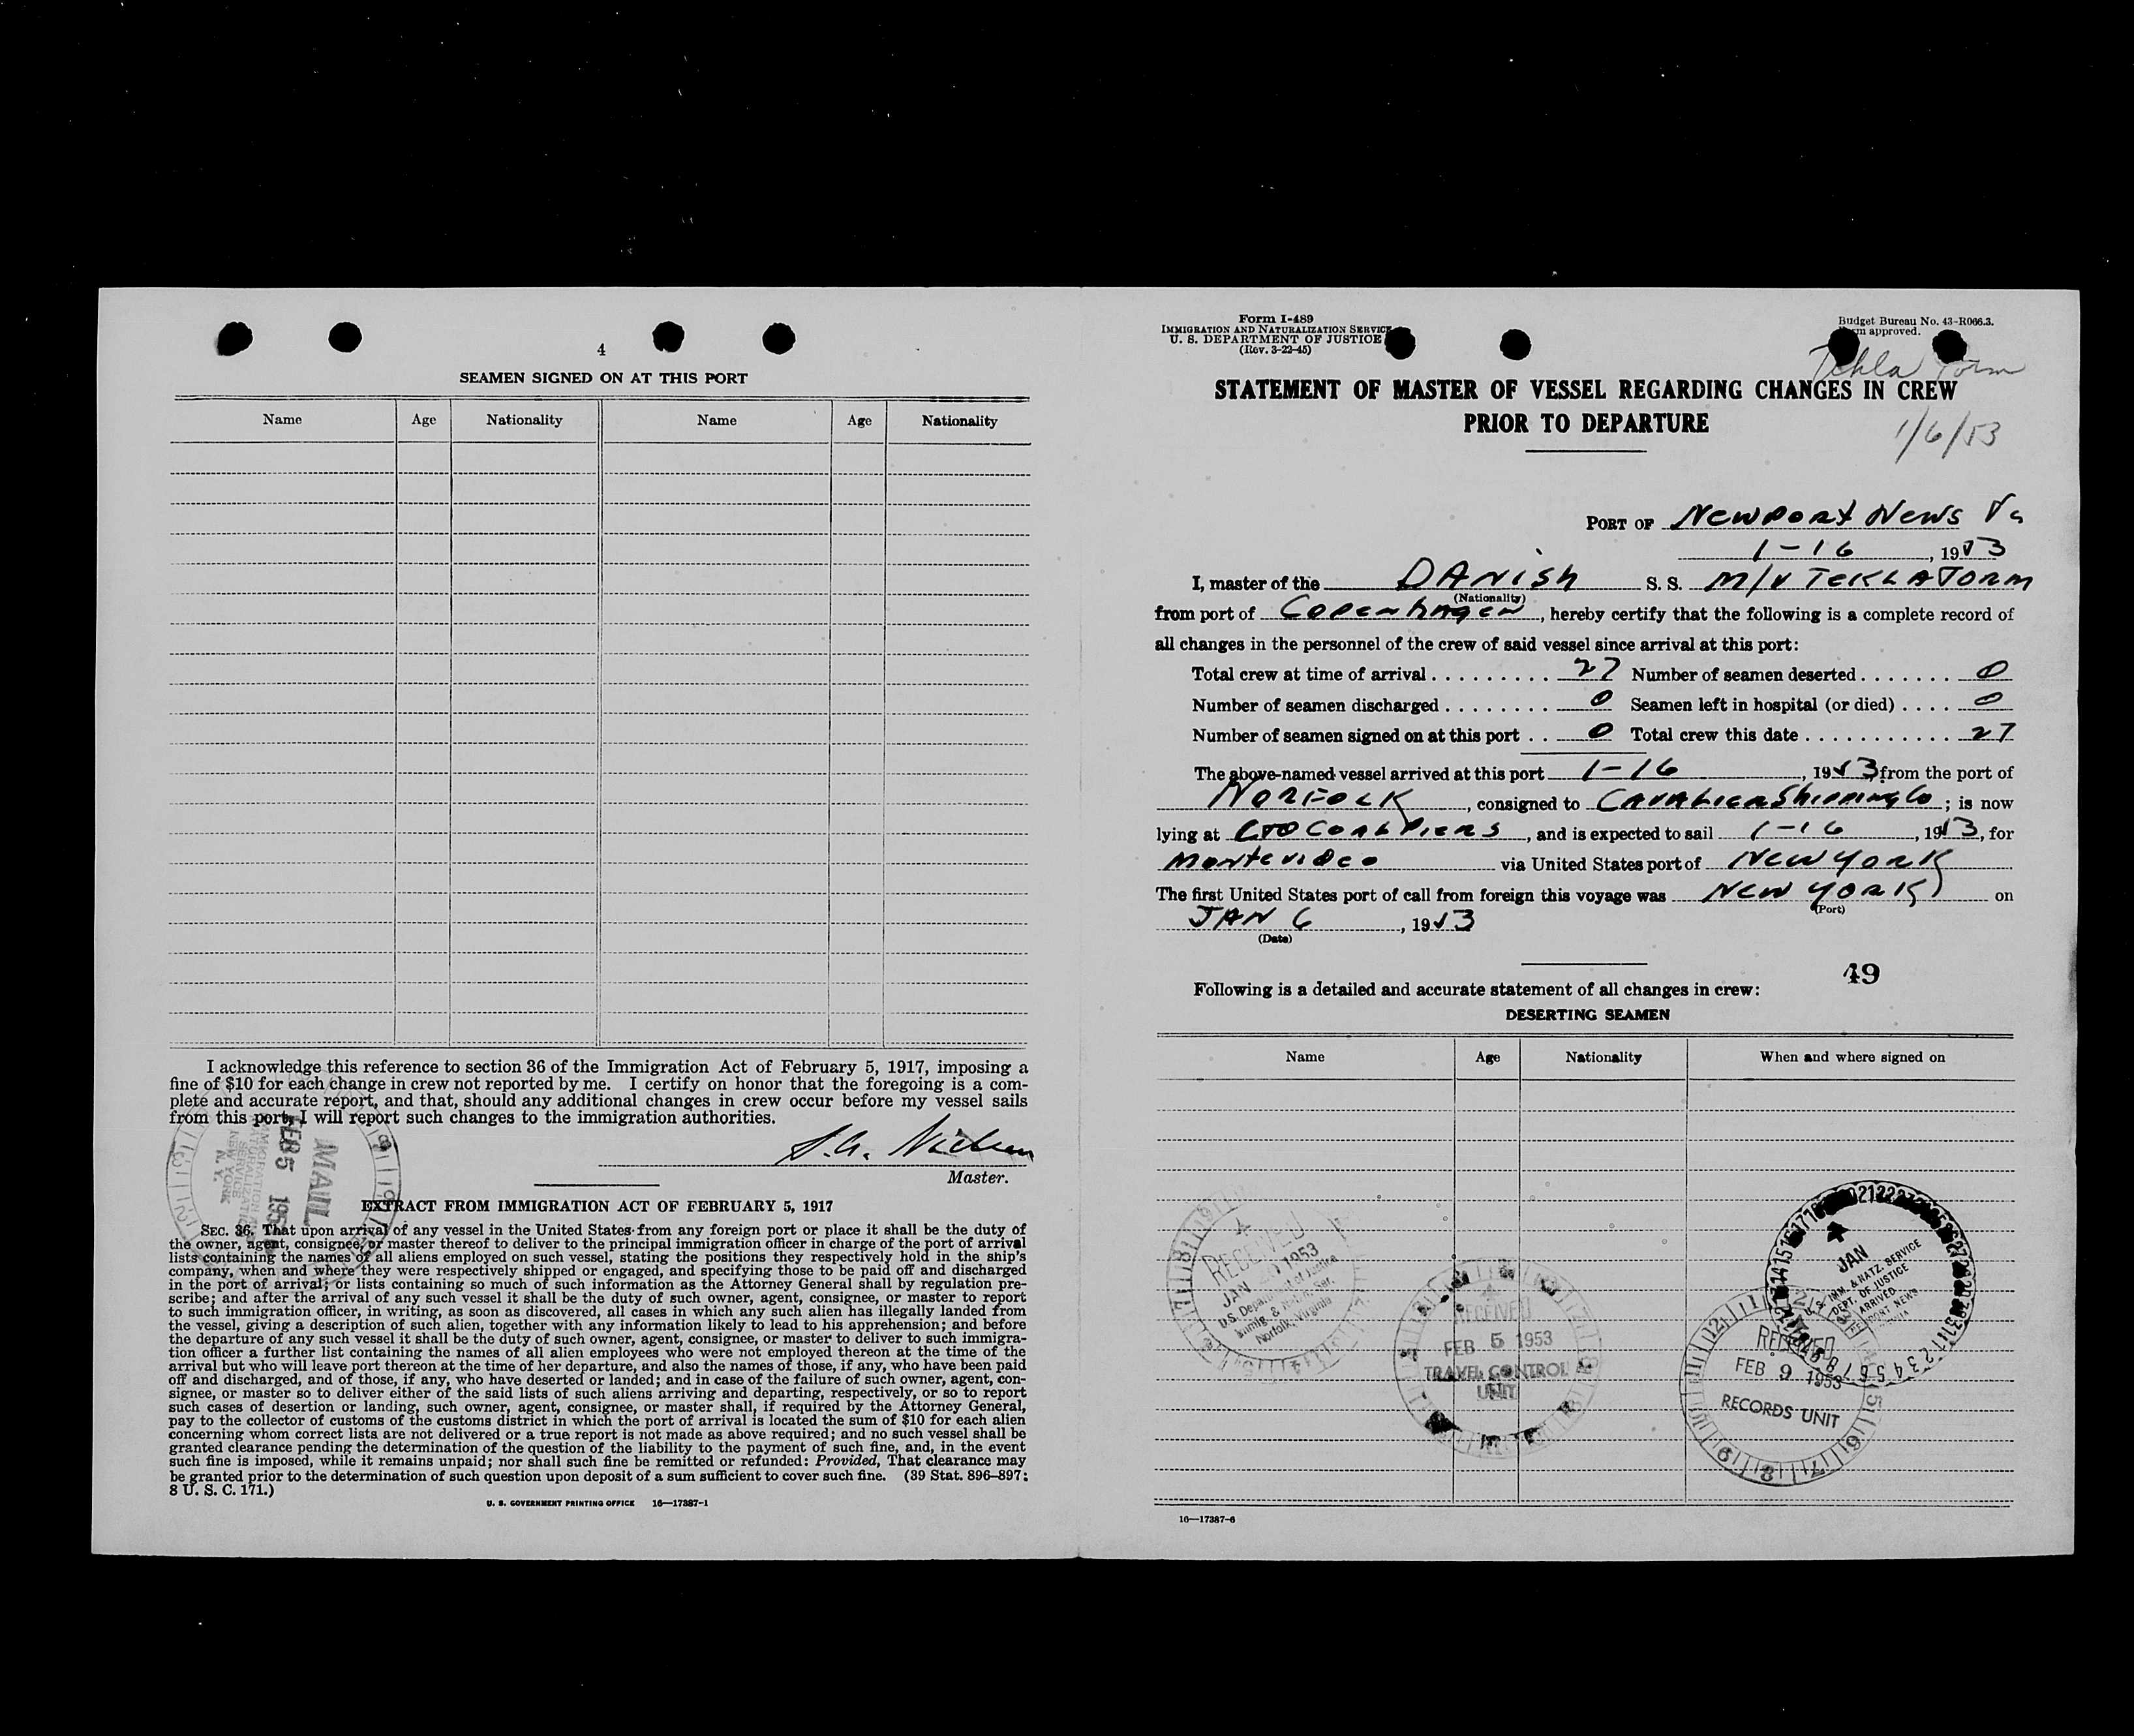 4
SEAMEN SIGNED ON AT THIS PORT
Name Age Nationality Name Age Nationality
I acknowledge this reference to section 36 of the Immigration Act of February 5, 1917, imposing a
fine of $10 for each change in crew not reported by me. I certify on honor that the foregoing is a com-
plete and accurate report, and that, should any additional changes in crew occur before my vessel sails
from this port, I will report such changes to the immigration authorities.
Master.
MAIL
FEB 5 195
IMMIGRATION
NATURALIZATION
SERVICE
NEW YORK
N. Y.
EXTRACT FROM IMMIGRATION ACT OF FEBRUARY 5, 1917
SEC. 36. That upon arrival of any vessel in the United States from any foreign port or place it shall be the duty of
the owner, agent, consignee, or master thereof to deliver to the principal immigration officer in charge of the port of arrival
lists containing the names of all aliens employed on such vessel, stating the positions they respectively hold in the ship's
company, when and where they were respectively shipped or engaged, and specifying those to be paid off and discharged
in the port of arrival; or lists containing so much of such information as the Attorney General shall by regulation pre-
scribe; and after the arrival of any such vessel it shall be the duty of such owner, agent, consignee, or master to report
to such immigration officer, in writing, as soon as discovered, all cases in which any such alien has illegally landed from
the vessel, giving a description of such alien, together with any information likely to lead to his apprehension; and before
the departure of any such vessel it shall be the duty of such owner, agent, consignee, or master to deliver to such immigra-
tion officer a further list containing the names of all alien employees who were not employed thereon at the time of the
arrival but who will leave port thereon at the time of her departure, and also the names of those, if any, who have been paid
off and discharged, and of those, if any, who have deserted or landed; and in case of the failure of such owner, agent, con-
signee, or master so to deliver either of the said lists of such aliens arriving and departing, respectively, or so to report
such cases of desertion or landing, such owner, agent, consignee, or master shall, if required by the Attorney General,
pay to the collector of customs of the customs district in which the port of arrival is located the sum of $10 for each alien
concerning whom correct lists are not delivered or a true report is not made as above required; and no such vessel shall be
granted clearance pending the determination of the question of the liability to the payment of such fine, and, in the event
such fine is imposed, while it remains unpaid; nor shall such fine be remitted or refunded: Provided, That clearance may
be granted prior to the determination of such question upon deposit of a sum sufficient to cover such fine. (39 Stat. 896-897;
8 U. S. C. 171.)
U. S. GOVERNMENT PRINTING OFFICE 16—17387-1
Form I-489
IMMIGRATION AND NATURALIZATION SERVICE
U. S. DEPARTMENT OF JUSTICE
(Rev. 3-22-45)
Budget Bureau No. 43-R066.3.
approved.
Tekla Torm
STATEMENT OF MASTER OF VESSEL REGARDING CHANGES IN CREW
PRIOR TO DEPARTURE
1/6/53
PORT OF Newport News Va
1-16, 1953
I, master of the DANish S. S. M/V TEKLA TORM
(Nationality)
from port of Copenhagen, hereby certify that the following is a complete record of
all changes in the personnel of the crew of said vessel since arrival at this port:
Total crew at time of arrival . . . . . . . . . 27 Number of seamen deserted . . . . . . . 0
Number of seamen discharged . . . . . . . . 0 Seamen left in hospital (or died) . . . . 0
Number of seamen signed on at this port . . 0 Total crew this date . . . . . . . . . . . 27
The above-named vessel arrived at this port 1-16, 1953, from the port of
Norfolk, consigned to Cavalier Shipping Co; is now
lying at C&O Coal Piers, and is expected to sail 1-16, 1953, for
Montevideo via United States port of New York
The first United States port of call from foreign this voyage was New York on
(Port)
JAN 6, 1953
(Date)
49
Following is a detailed and accurate statement of all changes in crew:
DESERTING SEAMEN
Name Age Nationality When and where signed on
RECEIVED
JAN 1953
U.S. Department of Justice
Immig. & Natz. Ser.
Norfolk, Virginia
RECEIVED
FEB 5 1953
TRAVEL CONTROL
UNIT
JAN
IMM. & NATZ. SERVICE
DEPT. OF JUSTICE
ARRIVED
NEWPORT NEWS
RECEIVED
FEB 9 1953
RECORDS UNIT
16—17387-6